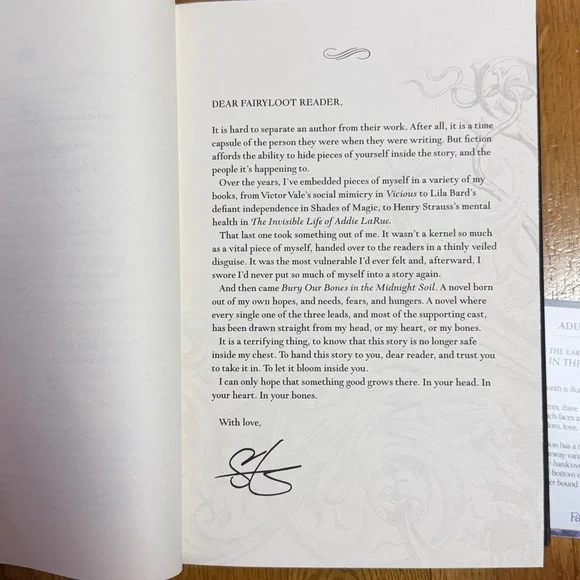 DEAR FAIRYLOOT READER,
It is hard to separate an author from their work. After all, it is a time
capsule of the person they were when they were writing. But fiction
affords the ability to hide pieces of yourself inside the story, and the
people it's happening to.
Over the years, I've embedded pieces of myself in a variety of my
books, from Victor Vale's social mimicry in Vicious to Lila Bard's
defiant independence in Shades of Magic, to Henry Strauss's mental
health in The Invisible Life of Addie LaRue.
That last one took something out of me. It wasn't a kernel so much
as a vital piece of myself, handed over to the readers in a thinly veiled
disguise. It was the most vulnerable I'd ever felt and, afterward, I
swore I'd never put so much of myself into a story again.
And then came Bury Our Bones in the Midnight Soil. A novel born
out of my own hopes, and needs, fears, and hungers. A novel where
every single one of the three leads, and most of the supporting cast,
has been drawn straight from my head, or my heart, or my bones.
It is a terrifying thing, to know that this story is no longer safe
inside my chest. To hand this story to you, dear reader, and trust you
to take it in. To let it bloom inside you.
I can only hope that something good grows there. In your head. In
your heart. In your bones.
With love,
ADU
THE
IN THE
three
love
has a
hardcover
bottom
bound